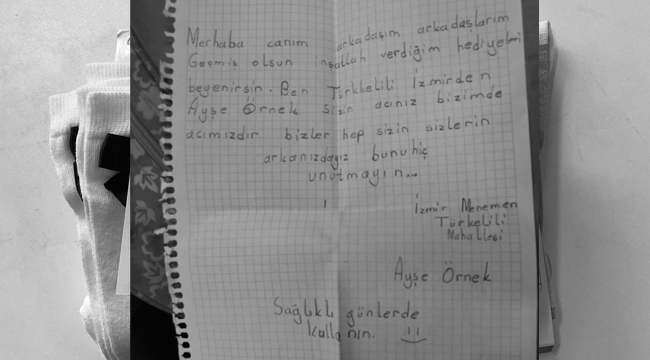 Merhaba canım arkadaşım arkadaşlarım
Geçmiş olsun inşallah verdiğim hediyeleri
beyenirsin. Ben Türkelili İzmirden
Ayşe Örnek sizin acınız bizimde
acımızdır bizler hep sizin sizlerin
arkanızdayız bunu hiç
unutmayın...
İzmir Menemen
Türkelili
Mahallesi
Ayşe Örnek
Sağlıklı günlerde
kullanın. :)